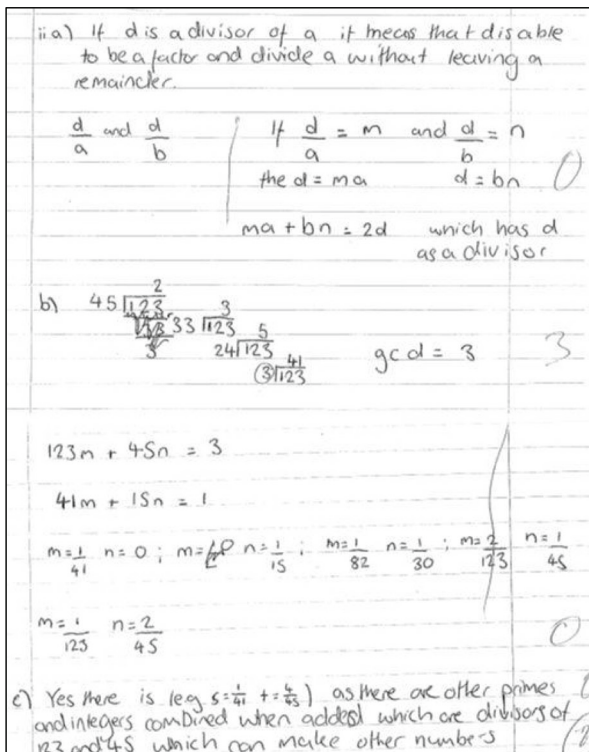 ii a) If d is a divisor of a it means that d is able
to be a factor and divide a without leaving a
remainder.
d/a and d/b If d/a = m and d/b = n
the d = ma d = bn 0
ma + bn = 2d which has d
as a divisor
b) 45 123 2
33 123 3
24 123 5
3 123 41
gcd = 3 3
123m + 45n = 3
41m + 15n = 1
m = 1/41 n = 0 ; m = 0 n = 1/15 ; m = 1/82 n = 1/30 ; m = 2/123 n = 1/45
m = 1/123 n = 2/45 0
c) Yes there is (eg s = 1/41 t = 4/45) as there are other primes
and integers combined when added which are divisors of
123 and 45 which can make other numbers